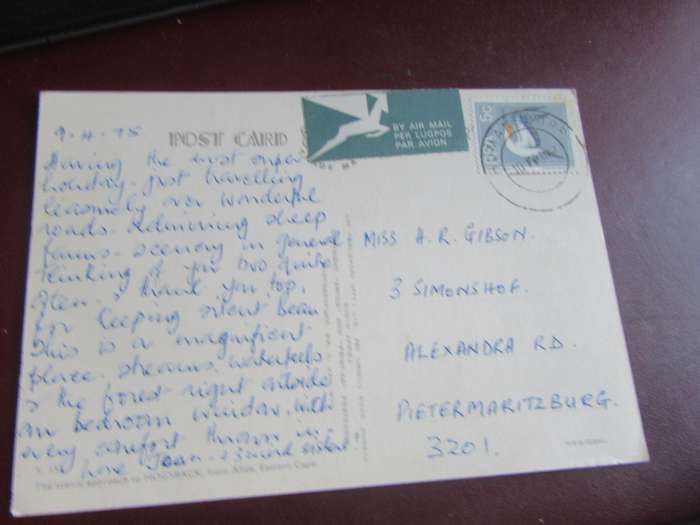 9-4-75
POST CARD
Having the most super
holiday - just travelling
leisurely over wonderful
roads. Admiring sheep
farms - scenery in general
thinking of you two quite
often. & thank you too,
for keeping silent beau
This is a magnificent
place. streams, waterfalls
& the forest right outside
our bedroom window. with
every comfort thrown in -
Love Joan + 3 weird sisters!
The scenic approach to HOGSBACK, from Alice, Eastern Cape.
BY AIR MAIL
PER LUGPOS
PAR AVION
5c
MISS A. R. GIBSON.
3 SIMONSHOF.
ALEXANDRA RD.
PIETERMARITZBURG.
3201.